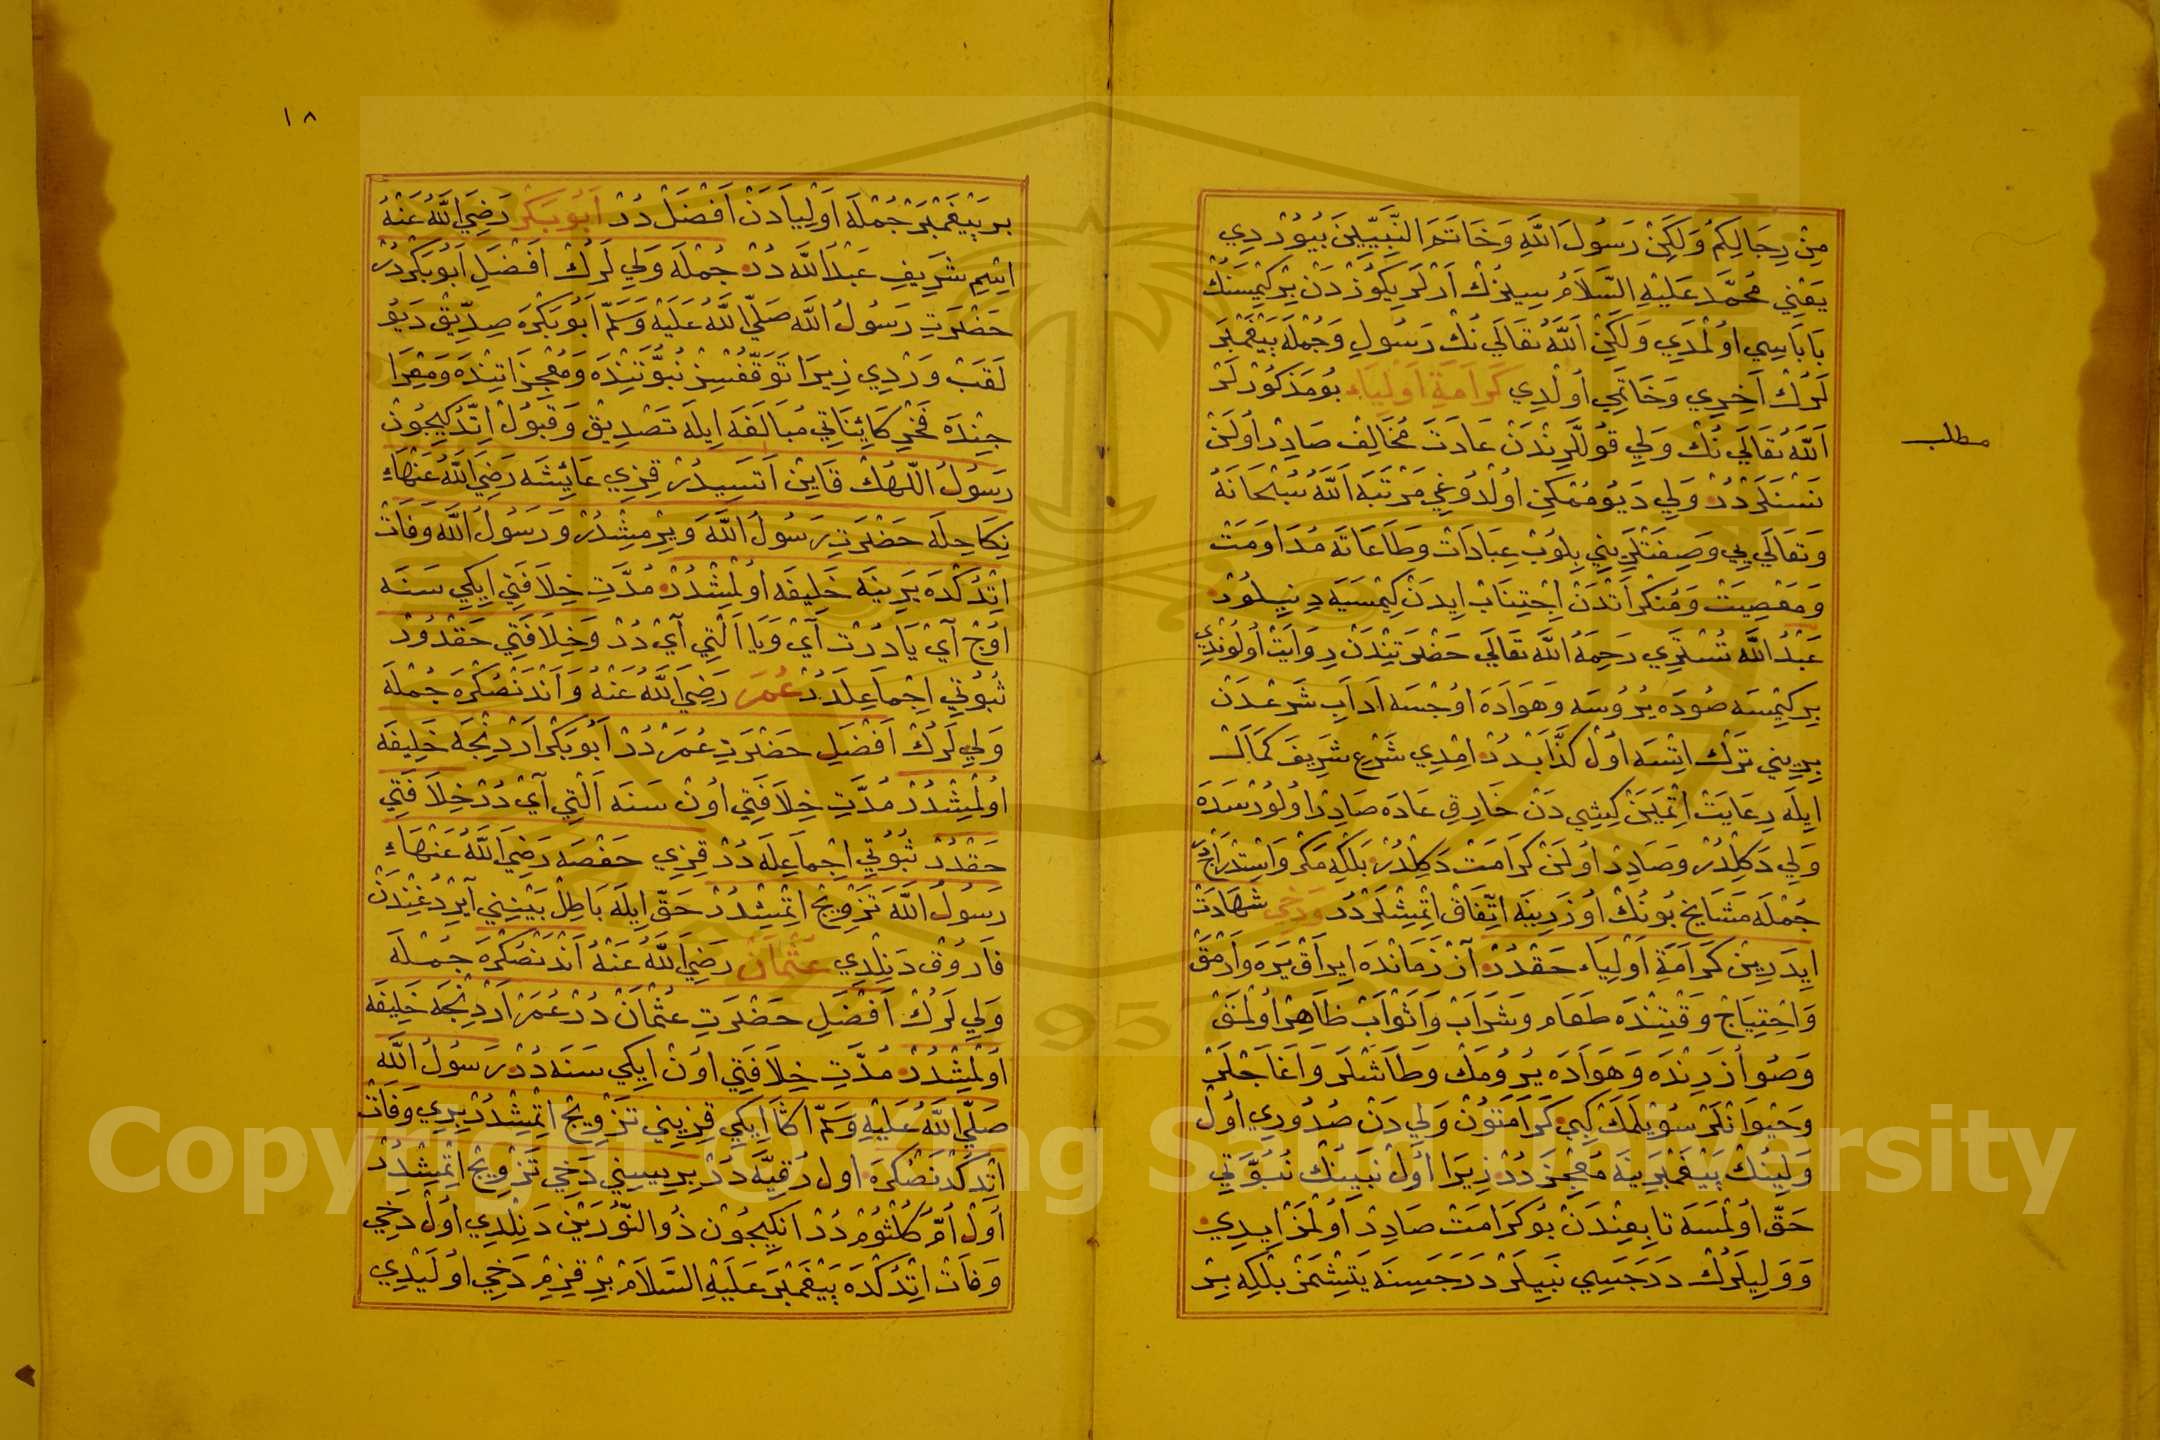 مِنْ رِجَالِكِمْ وَلَكِنْ رَسُولَ اللّٰهِ وَخَاتَمَ النَّبِيّينَ بُيُوْرْدِي
يَعْنِي مُحَمَّد عَلَيْهِ السَّلَامُ سِيزُكْ اَرْلَرِيكُوزْدَنْ بِرْكِيمْسَنُكْ
بَابَاسِي اُولْمَدِي وَلَكِنْ اَللّٰهُ تَعَالَي نُكْ رَسُولِ وَجُمْلَه بَيْغَمْبَرْ
لَرُكْ اَخِرِي وَخَاتَمِي اُولْدِي كَرَامَةِ اَوْلِيَاء بُومَذكُورْلَرْ
اَللّٰهُ تَعَالَي نُكْ وَلِي قُولْلَرِنْدَنْ عَادَتَ مُخَالِفْ صَادِرْ اُولَنْ
نَسْنَلَرْدُرْ وَلِي دَيُو مُمْكِنْ اُولْدُوغِي مَرْتَبَه اَللّٰهُ سُبْحَانَهُ
وَتَعَالَي يِي وَصِفَتْلَرِينِي بِلُوبْ عِبَادَاتْ وَطَاعَاتَه مُدَاوَمَتْ
وَمَعْصِيَتْ وَمُنْكَرَاتْدَنْ اِجْتِنَابْ اِيدَنْ كِيْمْسَيَه دِنِيلُورْ
عَبْدُ اللّٰه تُسْتَرِي رَحِمَهُ اللّٰه تَعَالَي حَضْرَتِنْدَنْ رِوَايَتْ اُولُونْدِي
بِرْكِيمْسَه صُودَه يُرُوسَه وَهَوَادَه اوُجْسَه اَدَابِ شَرْعْدَنْ
بِرِينِي تَرْك اِتْسَه اُولْ كَذَّابْدُرْ اِمْدِي شَرْعِ شَرِيفَ كَمَالْ
اِيلَه رِعَايَتْ اِتْمَيَنْ كِيشِي دَنْ خَارِقِ عَادَه صَادِرْ اُولُورْسَدَه
وَلِي دَكِلْدُرْ وَصَادِرْ اُولَنْ كَرَامَتْ دَكِلْدُرْ بَلْكِه مَكْر وَاسْتِدْرَاجْدُرْ
جُمْلَه مَشَايِخْ بُونُكْ اُوزَرِينَه اِتِّفَاقْ اِتْمِيشْلَرْدُرْ وَدَخِي شَهَادَتْ
اِيدَرِينْ كَرَامَةِ اَوْلِيَاء حَقْدُرْ آزْ زَمَانْدَه اِيرَاقْ يَرَه وَارْمَقْ
وَاحْتِيَاجْ وَقْتِنْدَه طَعَام وَشَرَابْ وَاَثْوَابْ ظَاهِرْ اُولْمَقْ
وَصُو اُزَرِنْدَه وَهَوَادَه يُرُومَكْ وَطَاشْلَرْ وَاَغَاجْلَرْ
وَحَيْوَانْلَرْ سُوْيلَمَكْ كِبِي كَرَامَتُونْ وَلِي دَنْ صُدُورِي اُولْ
وَلِينُكْ بَيْغَمْبَرِينَه مُعْجِزَه دُرْ زِيرَا اُولْ نَبِينُكْ نُبُوَّتِي
حَقّ اُولْمَسَه تَابِعِنْدَنْ بُو كَرَامَتْ صَادِرْ اُولْمَزْ اِيدِي
وَوَلِيلَرُكْ دَرَجَسِي نَبِيلَرْ دَرَجَسِنَه يَتِشْمَزْ بَلْكِه بِرْ
مطلب
١٨
بِرْ بَيْغَمْبَرْ جُمْلَه اَوْلِيَادَنْ اَفْضَلْ دُرْ اَبُو بَكْر رَضِيَ اللّٰهُ عَنْهُ
اِسْمِ شَرِيفِ عَبْدُ اللّٰه دُرْ جُمْلَه وَلِي لَرُكْ اَفْضَلِ اَبُو بَكْرْدُرْ
حَضْرَتِ رَسُولُ اللّٰه صَلَّي اللّٰهُ عَلَيْهِ وَسَلَّمْ اَبُو بَكْرَه صِدِّيقْ دَيُو
لَقَبْ وَرْدِي زِيرَا تَوَقُّفْسِزْ نُبُوَّتِنْدَه وَمُعْجِزَاتِنْدَه وَمِعْرَا
جِنْدَه فَخْرِ كَائِنَاتِي مُبَالَغَه اِيلَه تَصْدِيقْ وَقَبُولْ اِتْدُكِيچُونْ
رَسُولُ اللّٰهُكْ قَايِنْ اَتَسِيدُرْ قِزِي عَائِشَه رَضِيَ اللّٰهُ عَنْهَاء
نِكَاحِلَه حَضْرَتِ رَسُولُ اللّٰهَ وَيِرْمِشْدُرْ وَرَسُولُ اللّٰه وَفَاتْ
اِتْدُكْدَه يَرِينَه خَلِيفَه اُولْمِشْدُرْ مُدَّتِ خِلَافَتِي اِيكِي سَنَه
اوُچْ آيْ يَا دُرْت آيْ وَيَا اَلْتِي آيْ دُرْ وَخِلَافَتِي حَقْدُورْ
ثُبُوتِي اِجْمَاعِلَه دُرْ عُمَرْ رَضِيَ اللّٰهُ عَنْهُ وَاَنْدَنْصُكْرَه جُمْلَه
وَلِي لَرُكْ اَفْضَلِ حَضْرَتِ عُمَرْ دُرْ اَبُو بَكْر اَرْدِنْجَه خَلِيفَه
اُولْمِشْدُرْ مُدَّتِ خِلَافَتِي اوُنْ سَنَه اَلْتِي آيْ دُرْ خِلَافَتِي
حَقْدُرْ ثُبُوتِي اِجْمَاعِلَه دُرْ قِزِي حَفْصَه رَضِيَ اللّٰهُ عَنْهَاء
رَسُولُ اللّٰهَ تَزْوِيجْ اتْمِشْدُرْ حَقّ اِيلَه بَاطِلْ بَيْنِينِي آيِرْدُغِنْدَنْ
فَارُوقْ دَنِلْدِي عُثْمَانْ رَضِيَ اللّٰهُ عَنْهُ اَنْدَنْصُكْرَه جُمْلَه
وَلِي لَرُكْ اَفْضَلِ حَضْرَتِ عُثْمَانْ دُرْ عُمَرْ اَرْدِنْجَه خَلِيفَه
اُولْمِشْدُرْ مُدَّتِ خِلَافَتِي اوُنْ اِيكِي سَنَه دُرْ رَسُولُ اللّٰه
صَلَّي اللّٰهُ عَلَيْهِ وَسَلَّمْ اَكَا اِيكِي قِزِينِي تَزْوِيجْ اِتْمِشْدُرْ بِرِي وَفَاتْ
اِتْدُكْدَنْصُكْرَه اول رُقِيَّه دُرْ بِرِيسِينِي دَخِي تَزْوِيجْ اِتْمِشْدُرْ
اُولْ اُمِّ كُلْثُومْ دُرْ انَكِيچُونْ ذُو النُّورَيْنْ دَنِلْدِي اُولْ دَخِي
وَفَاتْ اِتْدُكْدَه بَيْغَمْبَرْ عَلَيْهِ السَّلَامْ بِرْ قِزِمْ دَخِي اُولَيْدِي